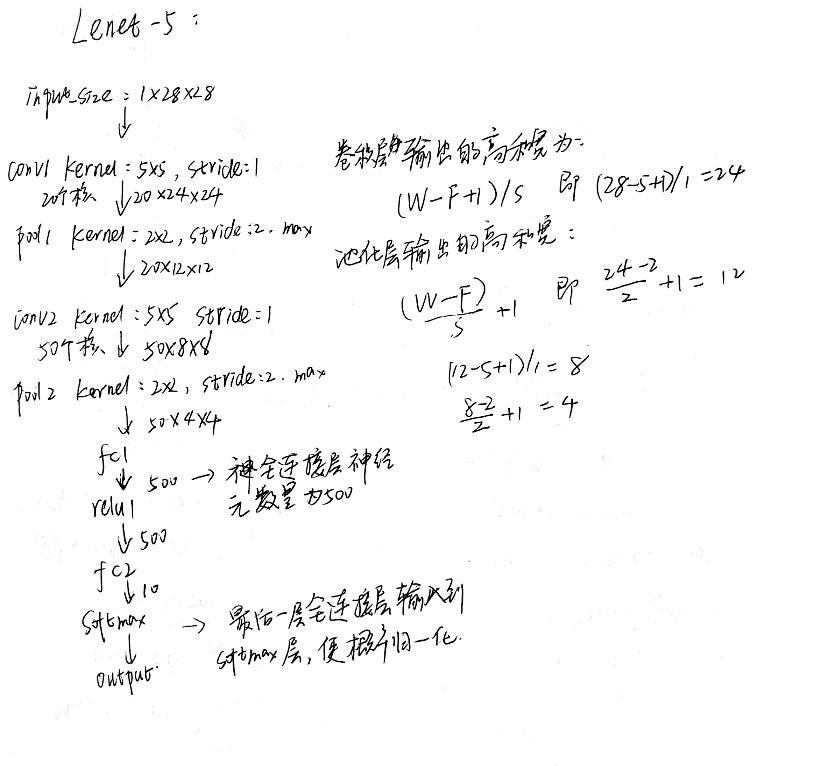 Lenet-5:
input_size: 1×28×28
↓
conv1 kernel: 5×5, stride: 1
20个核 ↓ 20×24×24
pool1 kernel: 2×2, stride: 2. max
↓ 20×12×12
conv2 kernel: 5×5 stride: 1
50个核 ↓ 50×8×8
pool2 kernel: 2×2, stride: 2. max
↓ 50×4×4
fc1
↓ 500 → 神全连接层神经
元数量为500
relu1
↓ 500
fc2
↓ 10
softmax → 最后一层全连接层输入到
softmax层, 使概率归一化.
↓
output.
卷积层输出的高和宽为:
(W-F+1)/S 即 (28-5+1)/1 = 24
池化层输出的高和宽:
(W-F)/S + 1 即 (24-2)/2 + 1 = 12
(12-5+1)/1 = 8
(8-2)/2 + 1 = 4